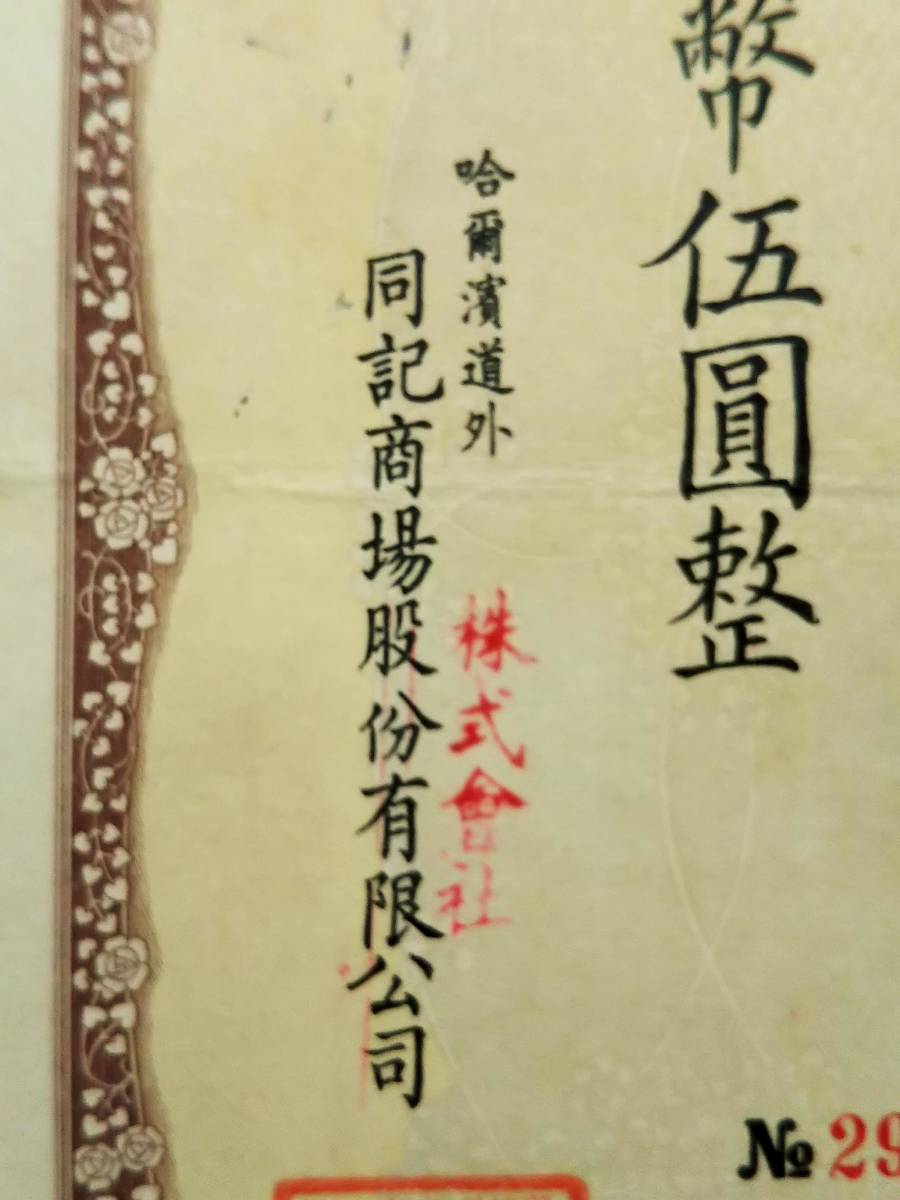 幣伍圓整
哈爾濱道外
株式會社
同記商場股份有限公司
№ 29